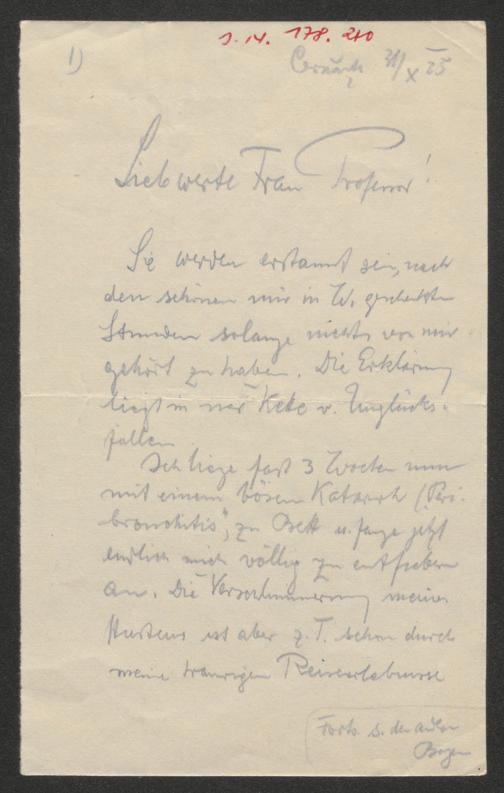 1)
I.N. 178.210
X 25
Liebwerte Frau Professor!
Sie werden erstaunt sein, nach
den schönen mir in W. geschenkten
Stunden solange nichts von mir
gehört zu haben. Die Erklärung
liegt in einer Kette v. Unglücks-
fällen.
Ich liege fast 3 Wochen nun
mit einem bösen Katarrh („Peri-
bronchitis“) zu Bett u. fange jetzt
endlich mich völlig zu entfiebern
an. Die Verschlimmerung meines
Hustens ist aber z. T. schon durch
meine traurigen Reiseerlebnisse
Forts. s. den andern
Bogen